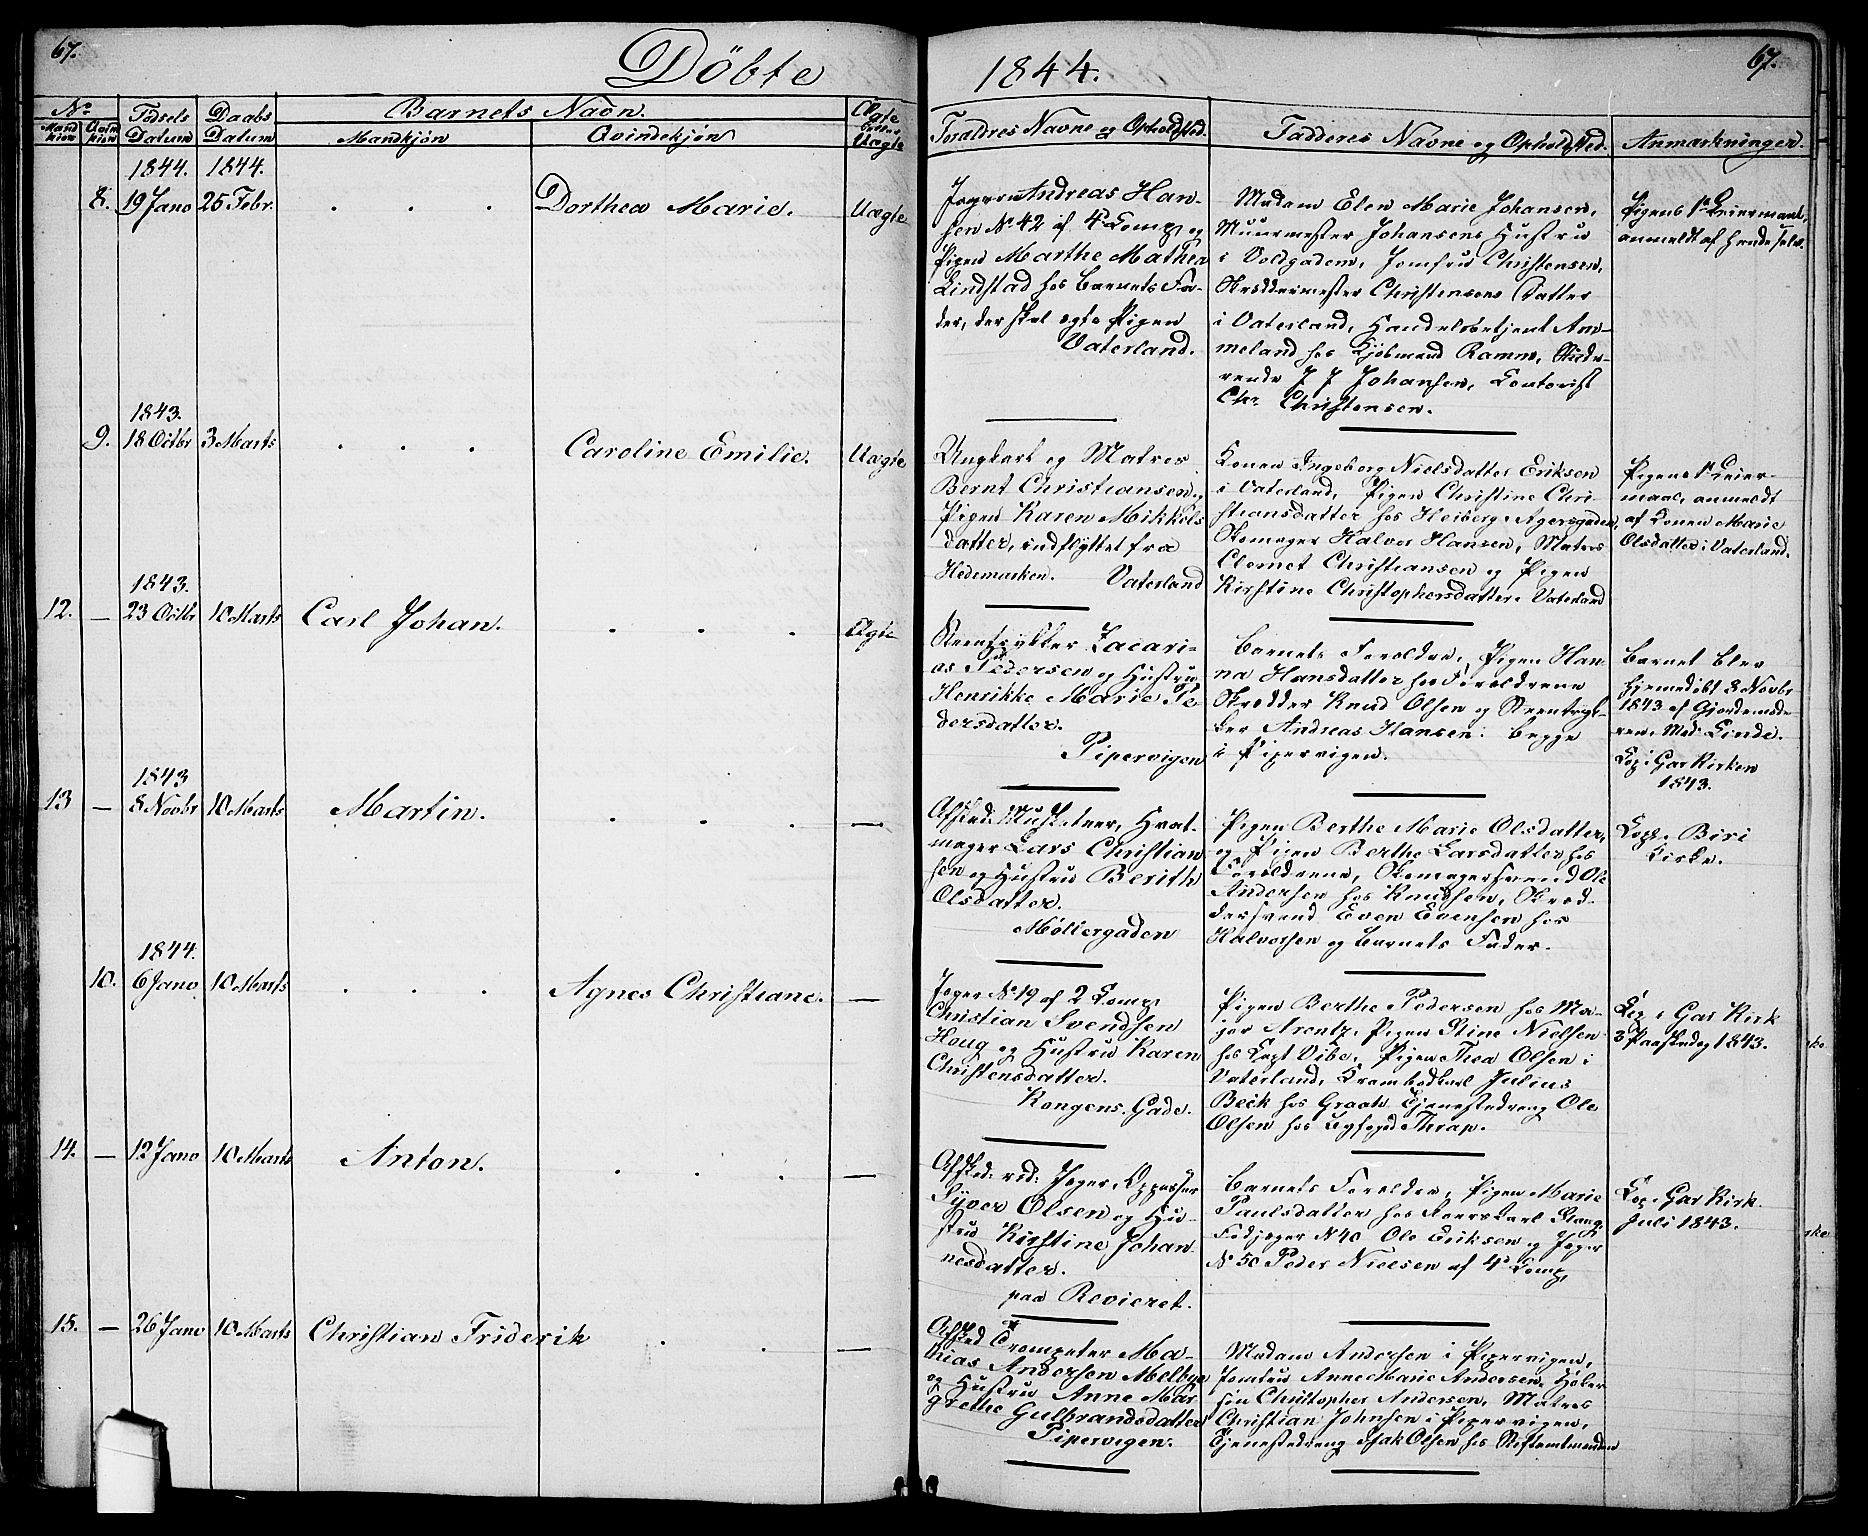 67.
Döbte
1844.
67.
No
Mandkiön
Qvinkiön
Födsels Datum
Daabs Datum
Barnets Navn.
Mandkjön
Qvindekjön
Ægte eller Uægte
Foraldres Navne og Opholdsted.
Fadderes Navne og Opholdsted.
Anmarkninger.
1844. 1844.
8. 19 Janv 25 Febr. Dorthea Marie. Uægte
Jegeren Andreas Han-
sen No 42 af 4 Comp og
Pigen Marthe Mathea
Lindstad hos Barnets Fa-
der, der skal ægte Pigen
Vaterland.
Madam Elen Marie Johansen,
Muurmester Johansens Hustru
i Voldgaden, Jomfru Christensen,
Skreddermester Christensens Datter
i Vaterland, Handelsbetjent Am-
meland hos Kjöbmand Ramm, Stude-
rende J J Johansen, Contorist
Chr. Christensen.
Pigens 1t Leiermaal,
anmeldt af hende selv.
1843.
9. 18 Octbr 3 Marts Caroline Emilie. Uægte
Ungkarl og Matros
Bernt Christiansen og
Pigen Karen Mikkels
datter, indflyttet fra
Hedemarken. Vaterland
Konen Ingeborg Nielsdatter Eriksen
i Vaterland, Pigen Christine Chri-
stiansdatter hos Heiberg i Agersgaden,
Skomager Halvor Hansen, Matros
Clemet Christiansen og Pigen
Kirstine Christophersdatter i Vaterland
Pigens 1t Leier-
maal, anmeldt
af Konen Marie
Olsdatter i Vaterland.
1843.
12. — 23 Octbr 10 Marts Carl Johan. Ægte
Steentrykker Zacari-
as Pedersen og Hustru
Henrikke Marie Pe-
dersdatter.
Pipervigen
Barnets Foreldre, Pigen Han-
na Hansdatter hos Foreldrene
Skredder Knud Olsen og Steentryk-
ker Andreas Hansen. begge
i Pipervigen.
Barnet blev
hjemmedöbt 8 Novbr
1843 af Gjordemode-
ren, Mad. Linde.
Cop i Gar Kirken
1843.
1843
13 — 8 Novbr 10 Marts Martin. —
Afsked: Musketeer, Hvat-
mager Lars Christian
sen og Hustru Berith
Olsdatter.
Möllergaden
Pigen Berthe Marie Olsdatter,
og Pigen Berthe Larsdatter hos
Foreldrene, Skomagersvend Ole
Andersen hos Knudsen, Skred-
dersvend Even Evensen hos
Halvorsen og Barnets Fader.
Cop i Biri
Kirke.
1844.
10. 6 Janv 10 Marts Agnes Christiane. —
Jeger No 19 af 2 Comp
Christian Svendsen
Houg og Hustru Karen
Christensdatter.
Kongens Gade.
Pigen Berthe Pedersen hos Ma-
jor Arentz, Pigen Stine Nielsen
hos Capt Vibe, Pigen Thea Olsen i
Vaterland, Krambodkarl Julius
Beck hos Graah Tjenestedreng Ole
Olsen hos Byfoged Thrap.
Cop i Gar Kirk
3 Paaskedag 1843.
14. — 12 Janv 10 Marts Anton. —
Afsked: rid: Jeger, Oppasser
Syver Olsen og Hu-
stru Kirstine Johan
nesdatter.
paa Revieret.
Barnets Foreldre, Pigen Marie
Paulsdatter hos Stang,
Fodjeger N 40 Ole Eriksen og Jeger
No 50 Peder Nielsen af 4d Comp
Cop i Gar Kirk
Juli 1843.
15. — 26 Janv 10 Marts Christian Friderik —
Afsked Trompeter Ma-
thias Andersen Melbye
og Hustru Anne Mar
grethe Gulbrandsdatter
Pipervigen.
Madam Andersen i Pipervigen,
Jomfru Anne Marie Andersen,
Christopher Andersen, Matros
Christian Johnsen i Pipervigen,
Tjenestedreng Isak Olsen hos Stiftamtmanden